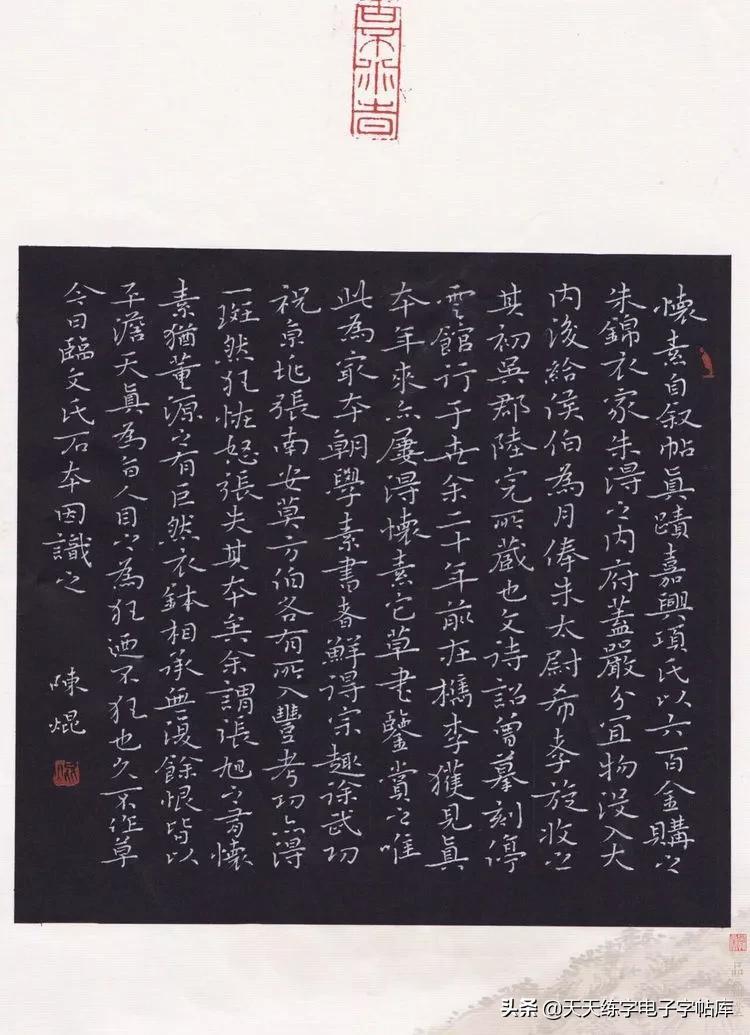 懷素自叙帖眞蹟嘉興項氏以六百金購之
朱錦衣家朱得之内府蓋嚴分宜物没入大
内後給侯伯為月俸朱太尉希孝旋收之
其初吳郡陸完所藏也文待詔曾摹刻停
雲館行于世余二十年前在檇李獲見眞
本年來亦屢得懷素它草書鑒賞之唯
此為最本朝學素書者鮮得宗趣徐武功
祝京兆張南安莫方伯各有所入豐考功亦得
一斑然狂怪怒張失其本矣余謂張旭之有懷
素猶董源之有巨然衣鉢相承無復餘恨皆以
平澹天眞為旨人目之為狂廼不狂也久不作草
今日臨文氏石本因識之
陳焜
头条 @天天练字电子字帖库